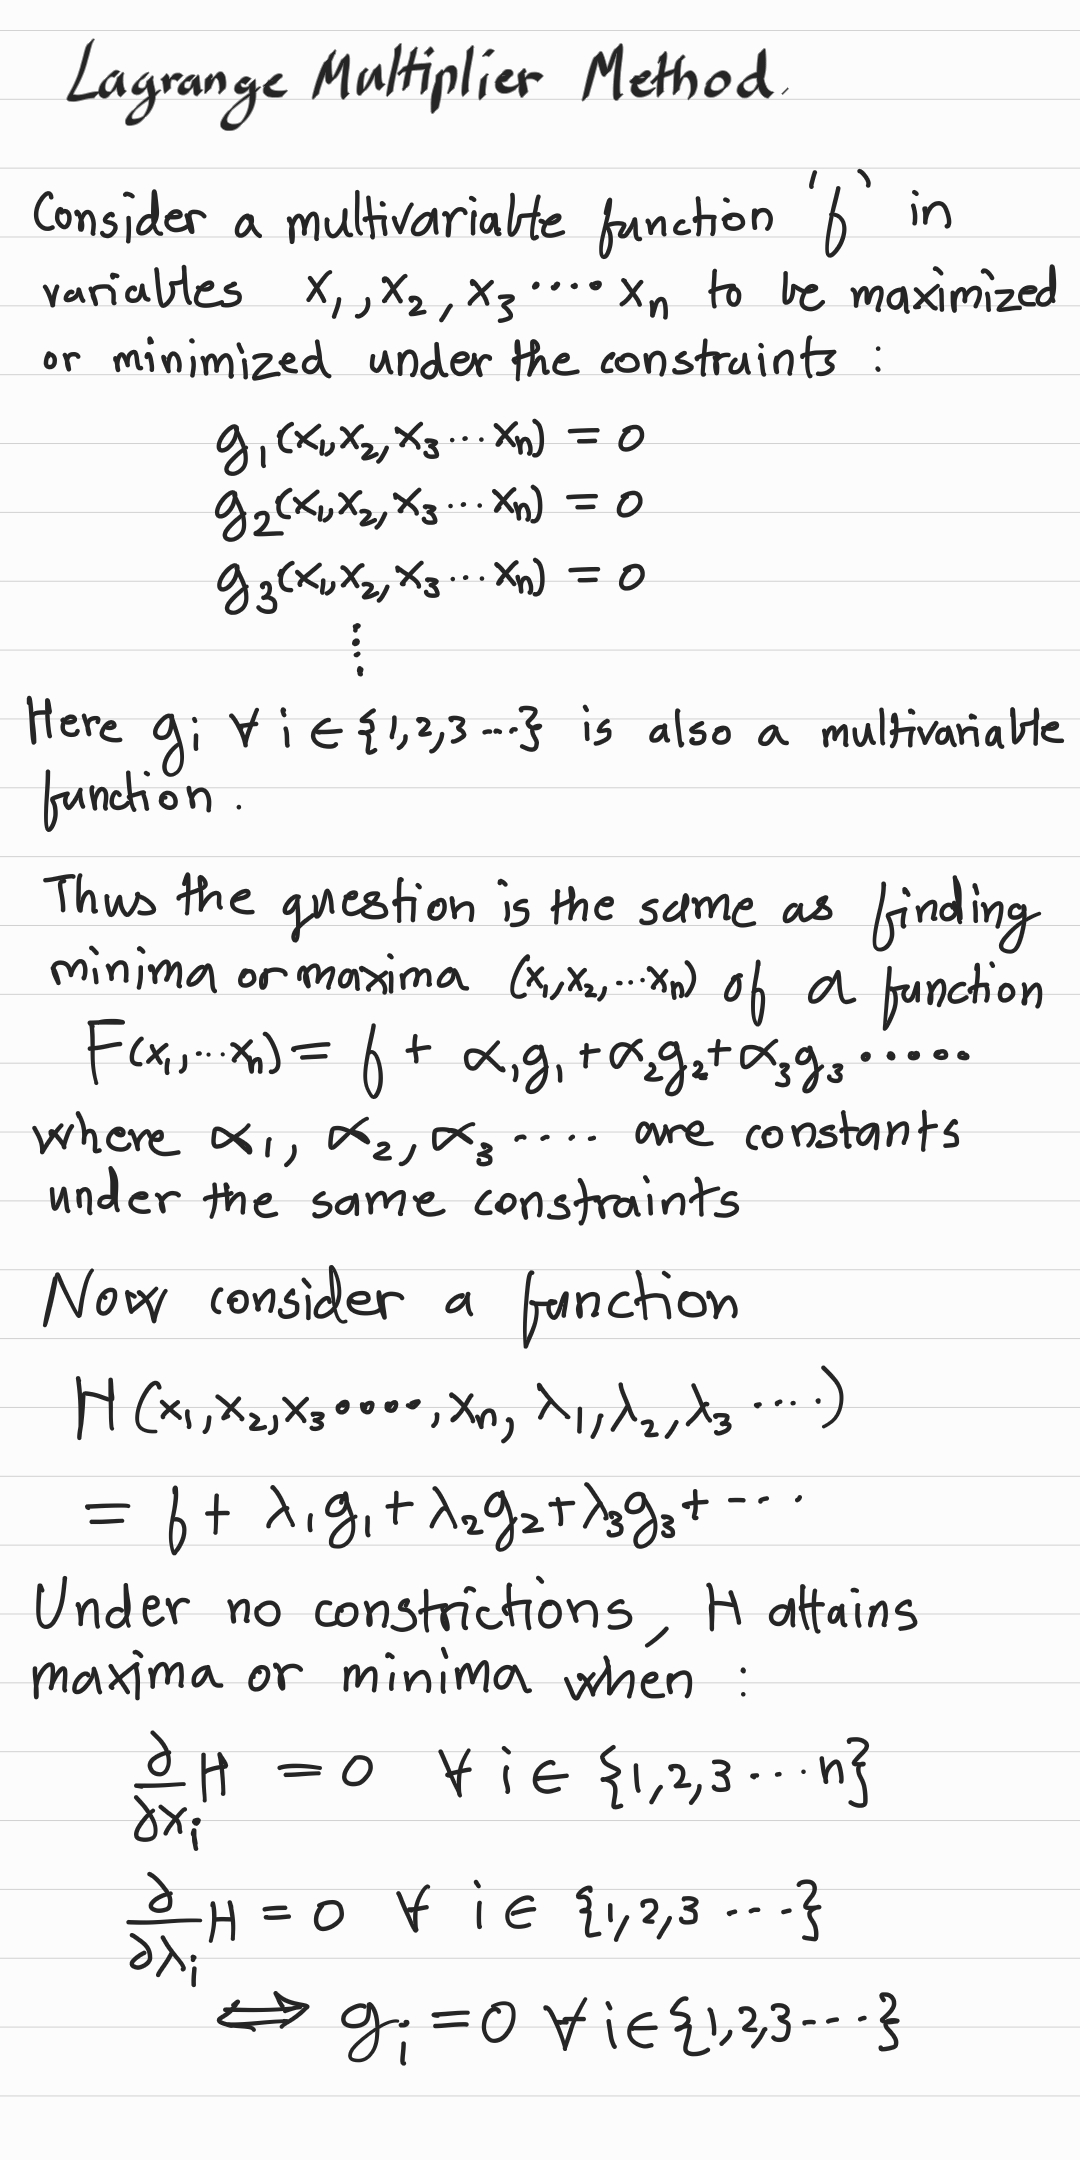 Lagrange Multiplier Method.
Consider a multivariable function 'f' in
variables x₁, x₂, x₃ ···· xₙ to be maximized
or minimized under the constraints :
g₁(x₁, x₂, x₃ ... xₙ) = 0
g₂(x₁, x₂, x₃ ... xₙ) = 0
g₃(x₁, x₂, x₃ ... xₙ) = 0
⋮
Here gᵢ ∀ i ∈ {1,2,3 ...} is also a multivariable
function .
Thus the question is the same as finding
minima or maxima (x₁, x₂, ... xₙ) of a function
F(x₁, ... xₙ) = f + α₁g₁ + α₂g₂ + α₃g₃ ·····
where α₁, α₂, α₃ ····· are constants
under the same constraints
Now consider a function
H (x₁, x₂, x₃ ····, xₙ, λ₁, λ₂, λ₃ ····)
= f + λ₁g₁ + λ₂g₂ + λ₃g₃ + ····
Under no constrictions, H attains
maxima or minima when :
∂/∂xᵢ H = 0 ∀ i ∈ {1, 2, 3 ... n}
∂/∂λᵢ H = 0 ∀ i ∈ {1, 2, 3 ...}
⟺ gᵢ = 0 ∀ i ∈ {1, 2, 3 ...}